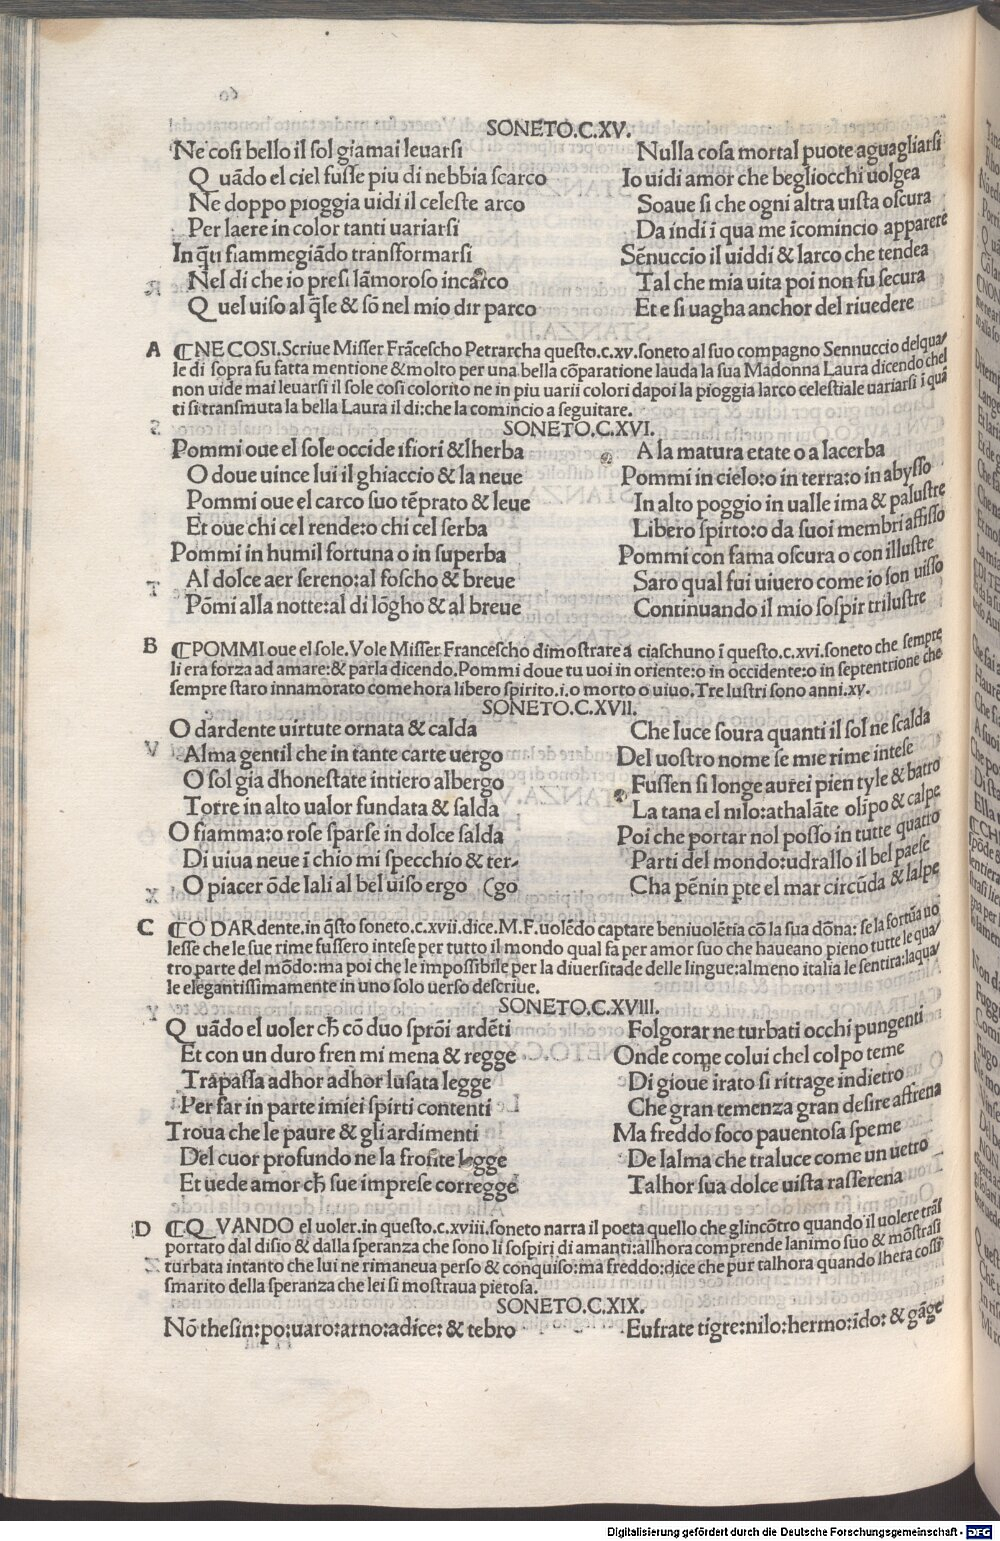 SONETO.C.XV.
Ne cosi bello il sol giamai leuarsi
Quãdo el ciel fusse piu di nebbia scarco
Ne doppo pioggia uidi il celeste arco
Per laere in color tanti uariarsi
In q̃ti fiammegiãdo transformarsi
Nel di che io presi lãmoroso incarco
Quel uiso al q̃le & sõ nel mio dir parco
Nulla cosa mortal puote aguagliarsi
Io uidi amor che begliocchi uolgea
Soaue si che ogni altra uista oscura
Da indi ĩ qua me icomincio apparere
Sẽnuccio il uiddi & larco che tendea
Tal che mia uita poi non fu secura
Et e si uagha anchor del riuedere
A ¶NE COSI.Scriue Misser Frãcescho Petrarcha questo.c.xv.soneto al suo compagno Sennuccio delqua/
le di sopra fu fatta mentione & molto per una bella cõparatione lauda la sua Madonna Laura dicendo chel
non uide mai leuarsi il sole cosi colorito ne in piu uarii colori dapoi la pioggia larco celestiale uariarsi ĩ quã
ti si transmuta la bella Laura il di:che la comincio a seguitare.
SONETO.C.XVI.
Pommi oue el sole occide ifiori & lherba
O doue uince lui il ghiaccio & la neue
Pommi oue el carco suo tẽprato & leue
Et oue chi cel rende:o chi cel serba
Pommi in humil fortuna o in superba
Al dolce aer sereno:al foscho & breue
Põmi alla notte:al di lõgho & al breue
A la matura etate o a lacerba
Pommi in cielo:o in terra:o in abysso
In alto poggio in ualle ima & palustre
Libero spirto:o da suoi membri affisso
Pommi con fama oscura o con illustre
Saro qual fui uiuero come io son uisso
Continuando il mio sospir trilustre
B ¶POMMI oue el sole.Vole Misser Francescho dimostrare a ciaschuno ĩ questo.c.xvi.soneto che sempre
li era forza ad amare:& parla dicendo.Pommi doue tu uoi in oriente:o in occidente:o in septentrione che
sempre staro innamorato come hora libero spirito.i.o morto o uiuo.Tre lustri sono anni.xv.
SONETO.C.XVII.
O dardente uirtute ornata & calda
Alma gentil che in tante carte uergo
O sol gia dhonestate intiero albergo
Torre in alto ualor fundata & salda
O fiamma:o rose sparse in dolce falda
Di uiua neue ĩ chio mi specchio & ter/
O piacer õde lali al bel uiso ergo (go
Che luce soura quanti il sol ne scalda
Del uostro nome se mie rime intese
Fussen si longe aurei pien tyle & batro
La tana el nilo:athalãte olĩpo & calpe
Poi che portar nol posso in tutte quatro
Parti del mondo:udrallo il bel paese
Cha pẽnin pte el mar circũda & lalpe
C ¶O DARdente.in q̃sto soneto.c.xvii.dice.M.F.uolẽdo captare beniuolẽtia cõ la sua dõna: se la fortũa uo
lesse che le sue rime fussero intese per tutto il mondo qual fa per amor suo che haueano pieno tutte le qua/
tro parte del mõdo:ma poi che le impossibile per la diuersitade delle lingue:almeno italia le sentira:laqua/
le elegantissimamente in uno solo uerso descriue.
SONETO.C.XVIII.
Quãdo el uoler cħ cõ duo sprõi ardẽti
Et con un duro fren mi mena & regge
Trapassa adhor adhor lusata legge
Per far in parte imiei spirti contenti
Troua che le paure & gli ardimenti
Del cuor profundo ne la fronte legge
Et uede amor cħ sue imprese corregge
Folgorar ne turbati occhi pungenti
Onde come colui chel colpo teme
Di gioue irato si ritrage indietro
Che gran temenza gran desire affrena
Ma freddo foco pauentosa speme
De lalma che traluce come un uetro
Talhor sua dolce uista rasserena
D ¶QVANDO el uoler.in questo.c.xviii.soneto narra il poeta quello che glincõtro quando il uolere trãs
portato dal disio & dalla speranza che sono li sospiri di amanti:allhora comprende lanimo suo & mõstrasi
turbata intanto che lui ne rimaneua perso & conquiso:ma freddo:dice che pur talhora quando lhera cossi
smarito della speranza che lei si mostraua pietosa.
SONETO.C.XIX.
Nõ thesin:po:uaro:arno:adice: & tebro
Eufrate tigre:nilo:hermo:ido: & gãge
Digitalisierung gefördert durch die Deutsche Forschungsgemeinschaft - DFG